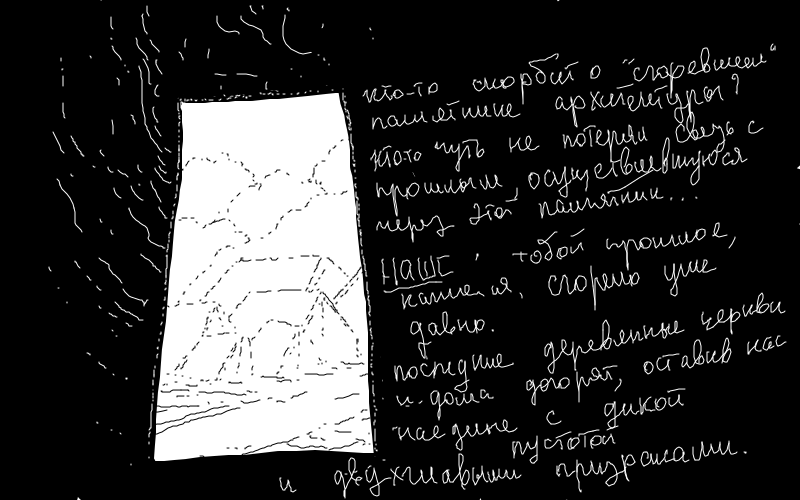 кто-то скорбит о "сгоревшем"
памятнике архитектуры?
кто-то чуть не потерял связь с
прошлым, осуществившуюся
через этот памятник...
НАШЕ с тобой прошлое,
кажется, сгорело уже
давно.
последние деревянные церкви
и дома догорят, оставив нас
наедине с дикой
пустотой
и двухглавыми призраками.